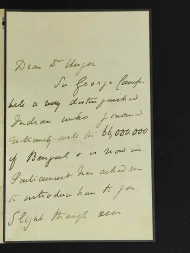 Dear Dr Unger
Sir George Camp-
bell a very distinguished
Indian who governed
the 66,000,000
of Bengal & is now in
Parliament has asked me
to introduce him to you
Slight though